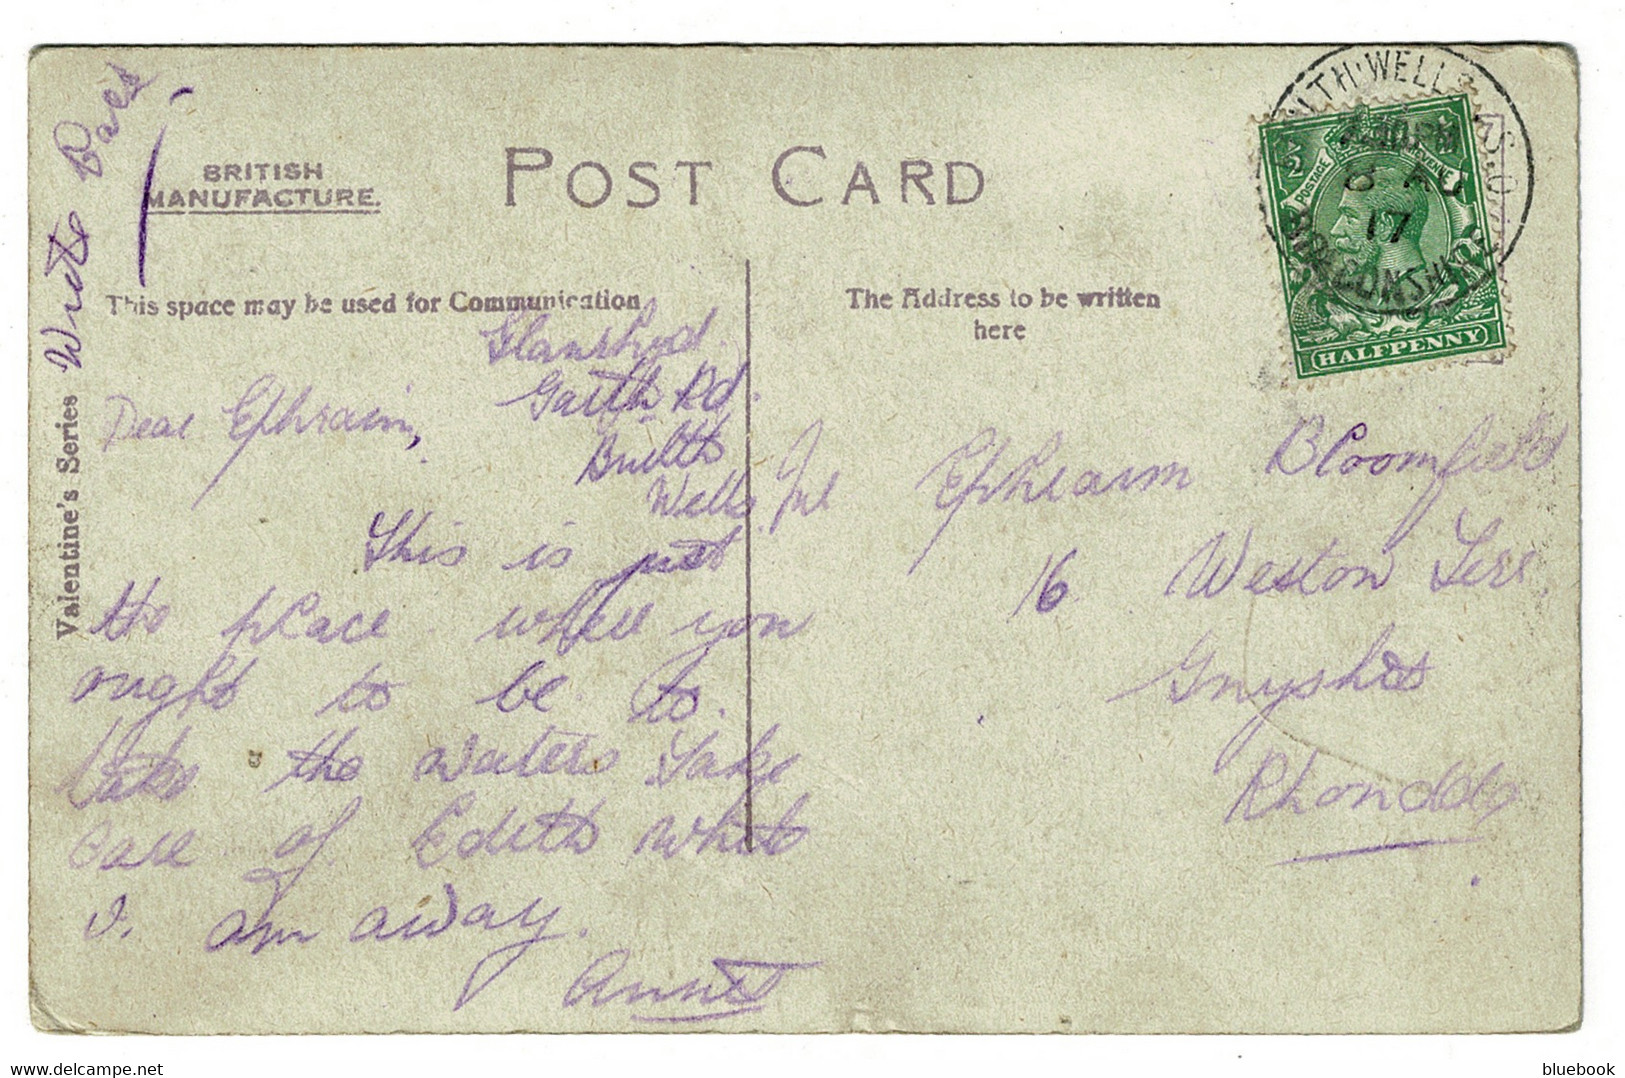 Write Back
BRITISH
MANUFACTURE.
POST CARD
This space may be used for Communication
The Address to be written
here
Valentine's Series
Glanrhyd
Garth Rd.
Builth
Wells.
Dear Ephraim,
This is just
the place where you
ought to be to
take the waters Take
care of Edith whilst
I. am away.
Annie
Ephraim Bloomfield
16 Weston Terr.
Rhondda
WELLS S.O.
8 AU
17
BRECONSHIRE
POSTAGE
REVENUE
HALFPENNY
bluebook